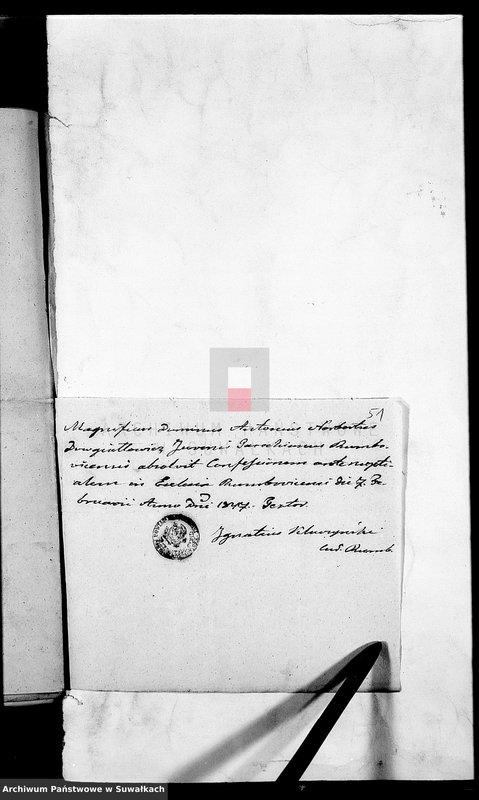 51
Magnificus Dominus Antonius Norbertus
Dowgiattowicz Juvenis Parochianus Rumbo-
vicensis absolvit Confessionem antenupti-
alem in Ecclesia Rumbovicensi die 7 Fe-
bruarii Anno Dni Testor.
Ignatius
Cur. Rumb.
Archiwum Państwowe w Suwałkach